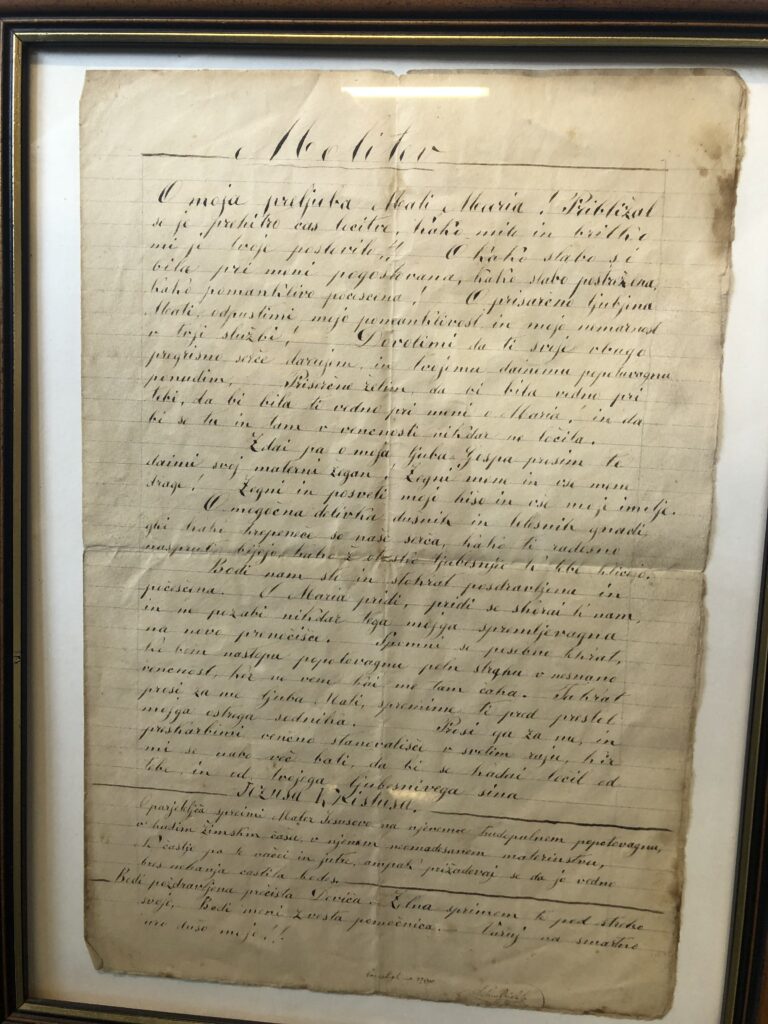 Molitev
O moja preljuba Mati Maria! Približal
se je prehitro čas ločitve, kako milo in britko
mi je tvoje postovilo!! O kako slabo si
bila pri meni pogostovana, kako slabo postrežena,
kako pomankljivo počeščena! O prisarčno ljubjena
Mati, odpustimi moje pomankljivost in moje nemarnost
v tvji službi! Dovolimi da ti svoje vbugo
pregrišno serce darujem, in tvojemu dainemu popotovagnu
ponudim. Priserčno želim, da bi bila vedno pri
tebi, da bi bila ti vedno pri meni o Maria! in da
bi se tu in tam v vencnosti nikdar ne ločila.
Zdai pa o moja ljuba Gospa prosim te
daimi svoj materni žegan! Žegni mene in vse mene
drage! Žegni in posveti mojo hišo in vse moje imetje.
O mogočna delivka dušnih in telesnih gnad!
glei kako hrepeneče so naše serca, kako ti radosno
nasproti bijejo, kako z otročjo ljubesnijo k tebi kličejo.
Bodi nam sto in stokrat pozdravljena in
počeščena. O Maria pridi, pridi se skorai k nam,
in ne pozabi nikdar tega mojga spremljovagna
na novo prenočišče. Spomni se posebno takrat,
ko bom nastopu popotovagnu poln straha v nesnano
vencnost, ker ne vem kai me tam čaka. Takrat
prosi za me ljuba Mati, spremime ti pred prestol
mojga ostrega sodnika. Prosi ga za me, in
preskarbimi vencno stanovališče v svetim raju, kir
mi se nabo več bati, da bi se kadai ločil od
tebe, in od tvojega ljubesnivega sina
Jezusa Kristusa.
O parjeklječ spreimi Mater Jesusovo na njevomo trudepulnem popotovagnu,
v našim žimskim času, v njenim neomadesanem materinstvu,
Ne častje pa le včeči in jutre, ampak prizadevaj se da jo vedno
bres nehanja častila bodes.
Bodi pozdravljena prečista Devica - Žlna sprimem te pod streho
svojo. Bodi meni zvesta pomočnica. - Varuj na smartno
uro dušo mojo!!